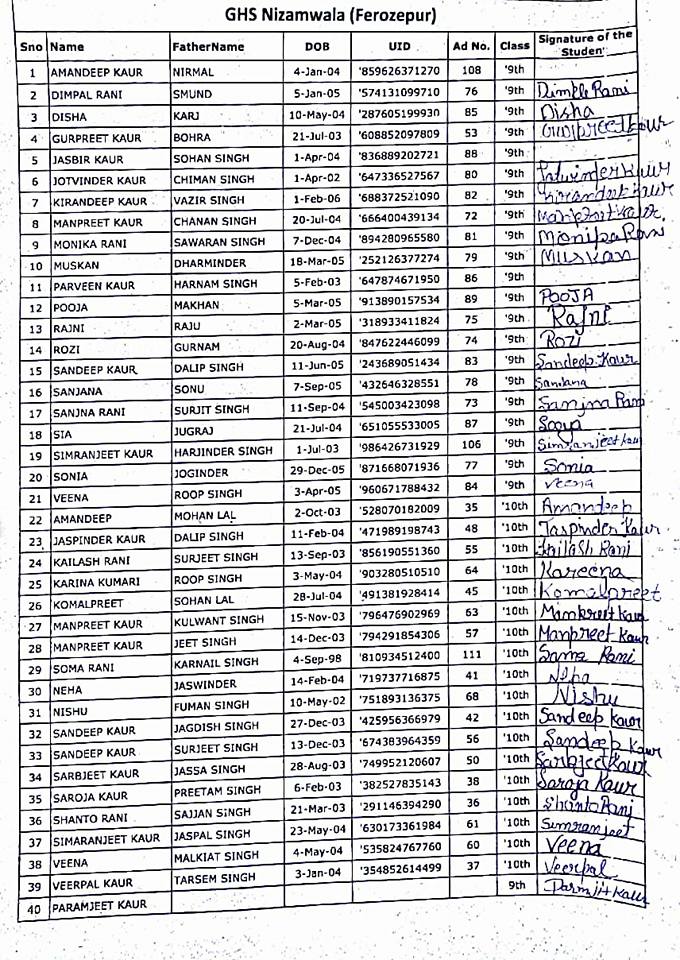 GHS Nizamwala (Ferozepur)
Sno Name FatherName DOB UID Ad No. Class Signature of the Studen
1 AMANDEEP KAUR NIRMAL 4-Jan-04 '859626371270 108 '9th
2 DIMPAL RANI SMUND 5-Jan-05 '574131099710 76 '9th Dimple Rani
3 DISHA KARJ 10-May-04 '287605199930 85 '9th Disha
4 GURPREET KAUR BOHRA 21-Jul-03 '608852097809 53 '9th Gurpreet kaur
5 JASBIR KAUR SOHAN SINGH 1-Apr-04 '836889202721 88 '9th
6 JOTVINDER KAUR CHIMAN SINGH 1-Apr-02 '647336527567 80 '9th
7 KIRANDEEP KAUR VAZIR SINGH 1-Feb-06 '688372521090 82 '9th
8 MANPREET KAUR CHANAN SINGH 20-Jul-04 '666400439134 72 '9th
9 MONIKA RANI SAWARAN SINGH 7-Dec-04 '894280965580 81 '9th Monika Rani
10 MUSKAN DHARMINDER 18-Mar-05 '252126377274 79 '9th Muskan
11 PARVEEN KAUR HARNAM SINGH 5-Feb-03 '647874671950 86 '9th
12 POOJA MAKHAN 5-Mar-05 '913890157534 89 '9th POOJA
13 RAJNI RAJU 2-Mar-05 '318933411824 75 '9th Rajni
14 ROZI GURNAM 20-Aug-04 '847622446099 74 '9th Rozi
15 SANDEEP KAUR DALIP SINGH 11-Jun-05 '243689051434 83 '9th Sandeep Kaur
16 SANJANA SONU 7-Sep-05 '432646328551 78 '9th Sanjana
17 SANJNA RANI SURJIT SINGH 11-Sep-04 '545003423098 73 '9th Sanjna Rani
18 SIA JUGRAJ 21-Jul-04 '651055533005 87 '9th
19 SIMRANJEET KAUR HARJINDER SINGH 1-Jul-03 '986426731929 106 '9th Simranjeet kaur
20 SONIA JOGINDER 29-Dec-05 '871668071936 77 '9th Sonia
21 VEENA ROOP SINGH 3-Apr-05 '960671788432 84 '9th Veena
22 AMANDEEP MOHAN LAL 2-Oct-03 '528070182009 35 '10th Amandeep
23 JASPINDER KAUR DALIP SINGH 11-Feb-04 '471989198743 48 '10th Jaspinder Kaur
24 KAILASH RANI SURJEET SINGH 13-Sep-03 '856190551360 55 '10th Kailash Rani
25 KARINA KUMARI ROOP SINGH 3-May-04 '903280510510 64 '10th Kareena
26 KOMALPREET SOHAN LAL 28-Jul-04 '491381928414 45 '10th Komalpreet
27 MANPREET KAUR KULWANT SINGH 15-Nov-03 '796476902969 63 '10th Manpreet Kaur
28 MANPREET KAUR JEET SINGH 14-Dec-03 '794291854306 57 '10th Manpreet Kaur
29 SOMA RANI KARNAIL SINGH 4-Sep-98 '810934512400 111 '10th Sama Rani
30 NEHA JASWINDER 14-Feb-04 '719737716875 41 '10th Neha
31 NISHU FUMAN SINGH 10-May-02 '751893136375 68 '10th Nishu
32 SANDEEP KAUR JAGDISH SINGH 27-Dec-03 '425956366979 42 '10th Sandeep Kaur
33 SANDEEP KAUR SURJEET SINGH 13-Dec-03 '674383964359 56 '10th Sandeep Kaur
34 SARBJEET KAUR JASSA SINGH 28-Aug-03 '749952120607 50 '10th Sarbjeet Kaur
35 SAROJA KAUR PREETAM SINGH 6-Feb-03 '382527835143 38 '10th Saroja Kaur
36 SHANTO RANI SAJJAN SINGH 21-Mar-03 '291146394290 36 '10th Shanto Rani
37 SIMARANJEET KAUR JASPAL SINGH 23-May-04 '630173361984 61 '10th Simranjeet
38 VEENA MALKIAT SINGH 4-May-04 '535824767760 60 '10th Veena
39 VEERPAL KAUR TARSEM SINGH 3-Jan-04 '354852614499 37 '10th Veerpal
40 PARAMJEET KAUR 9th Parmjit Kaur